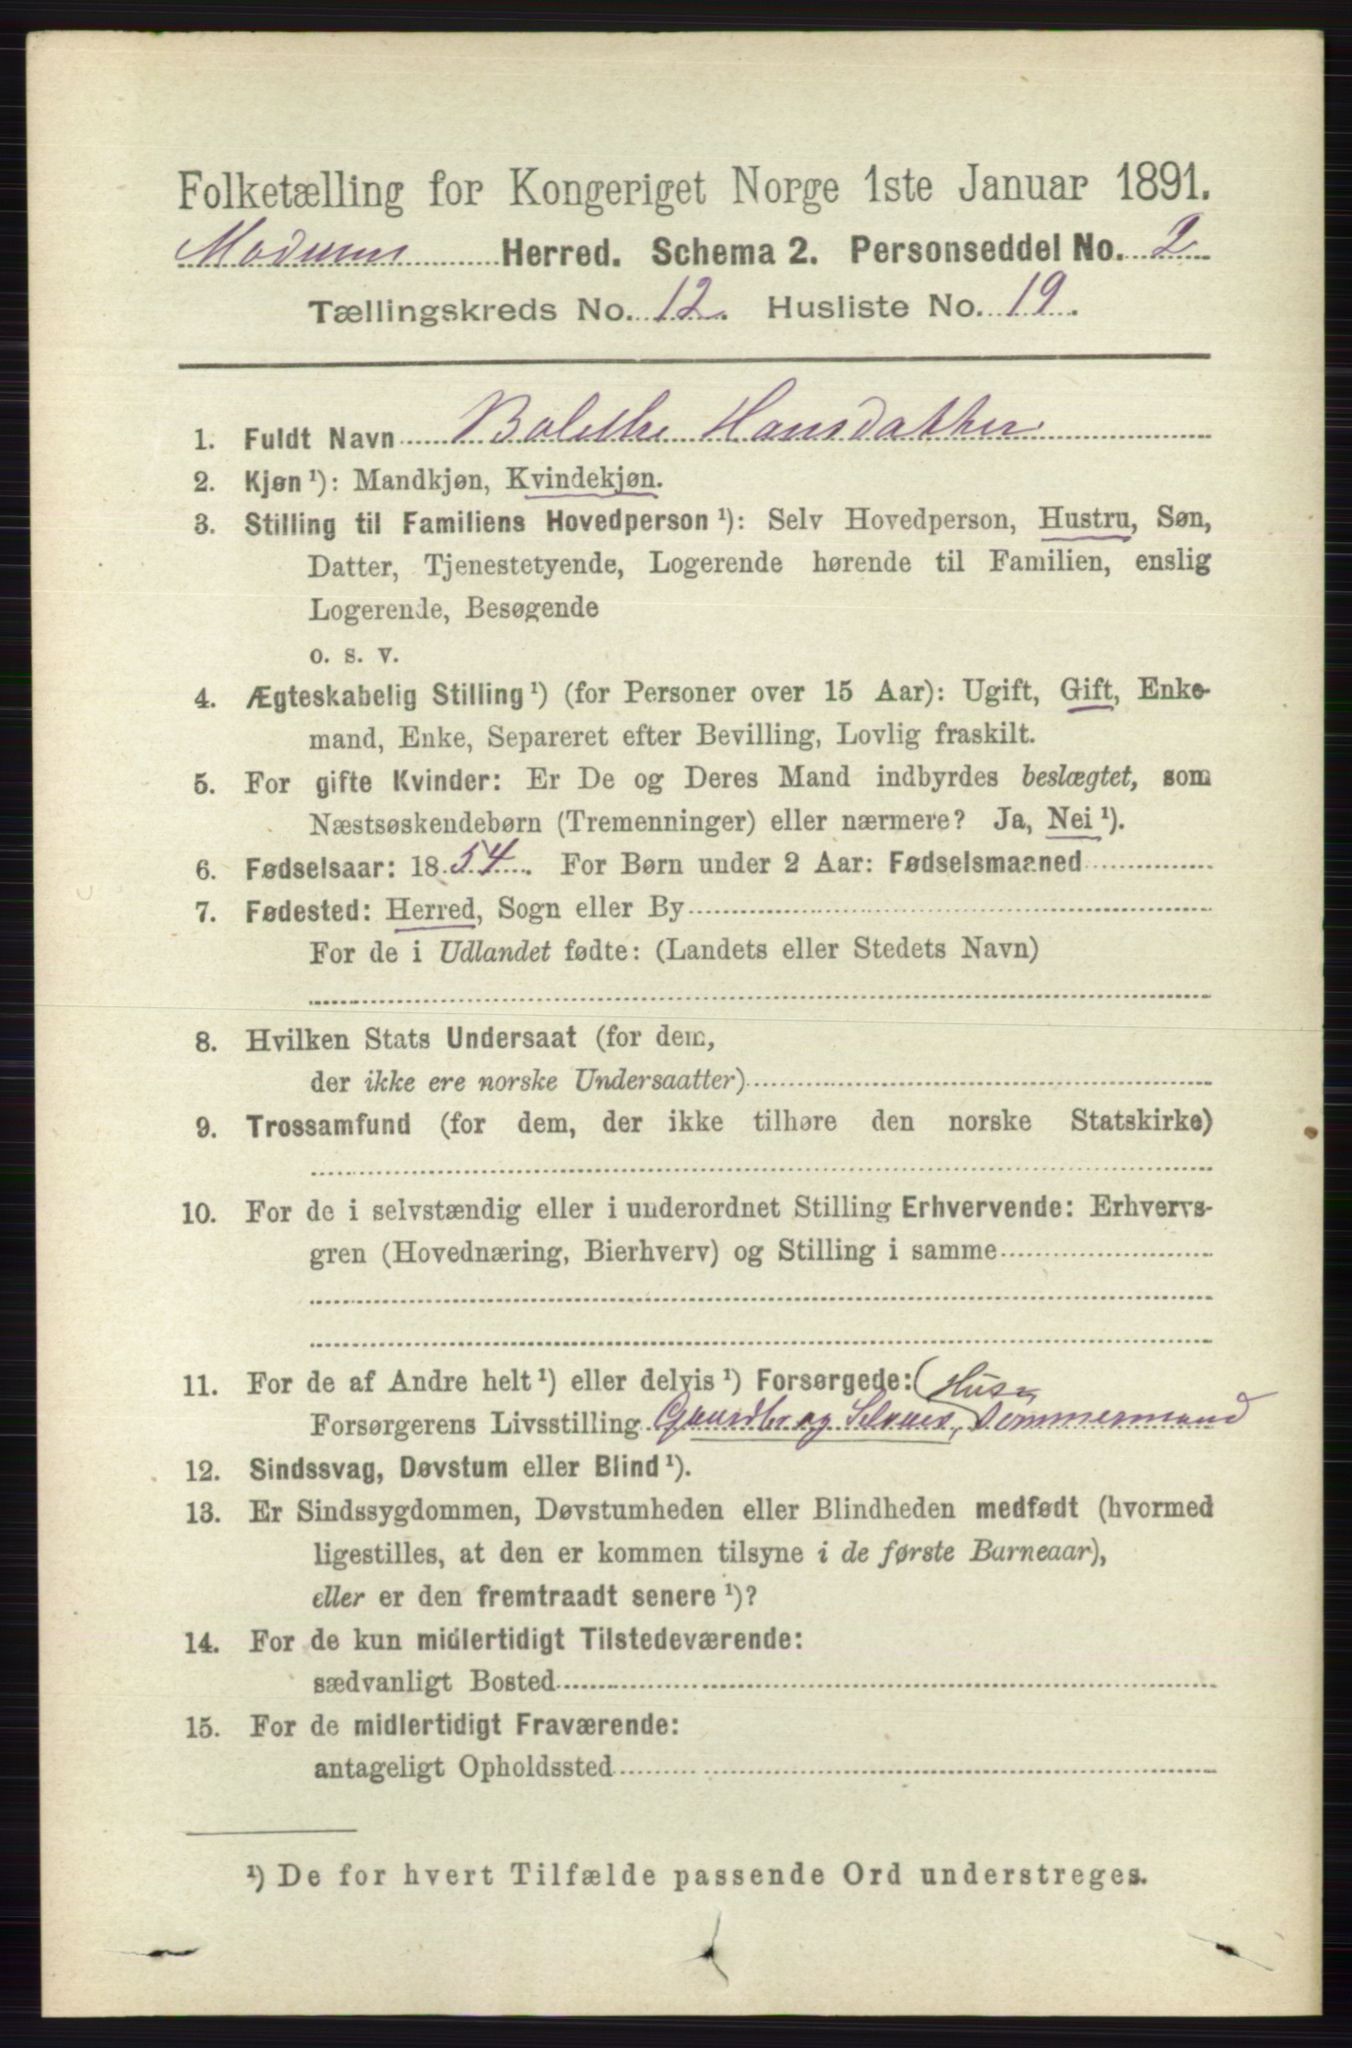 Folketælling for Kongeriget Norge 1ste Januar 1891.
Modums Herred. Schema 2. Personseddel No. 2
Tællingskreds No. 12. Husliste No. 19.
1. Fuldt Navn Bolethe Hansdatter
2. Kjøn ¹): Mandkjøn, Kvindekjøn.
3. Stilling til Familiens Hovedperson ¹): Selv Hovedperson, Hustru, Søn,
Datter, Tjenestetyende, Logerende hørende til Familien, enslig
Logerende, Besøgende
o. s. v.
4. Ægteskabelig Stilling ¹) (for Personer over 15 Aar): Ugift, Gift, Enke-
mand, Enke, Separeret efter Bevilling, Lovlig fraskilt.
5. For gifte Kvinder: Er De og Deres Mand indbyrdes beslægtet, som
Næstsøskendebørn (Tremenninger) eller nærmere? Ja, Nei ¹).
6. Fødselsaar: 1854. For Børn under 2 Aar: Fødselsmaaned
7. Fødested: Herred, Sogn eller By
For de i Udlandet fødte: (Landets eller Stedets Navn)
8. Hvilken Stats Undersaat (for dem,
der ikke ere norske Undersaatter)
9. Trossamfund (for dem, der ikke tilhøre den norske Statskirke)
10. For de i selvstændig eller i underordnet Stilling Erhvervende: Erhvervs-
gren (Hovednæring, Bierhverv) og Stilling i samme
11. For de af Andre helt ¹) eller delvis ¹) Forsørgede: (Hus
Forsørgerens Livsstilling Gaardbr og Selveier, Tømmermand
12. Sindssvag, Døvstum eller Blind ¹).
13. Er Sindssygdommen, Døvstumheden eller Blindheden medfødt (hvormed
ligestilles, at den er kommen tilsyne i de første Barneaar),
eller er den fremtraadt senere ¹)?
14. For de kun midlertidigt Tilstedeværende:
sædvanligt Bosted
15. For de midlertidigt Fraværende:
antageligt Opholdssted
¹) De for hvert Tilfælde passende Ord understreges.